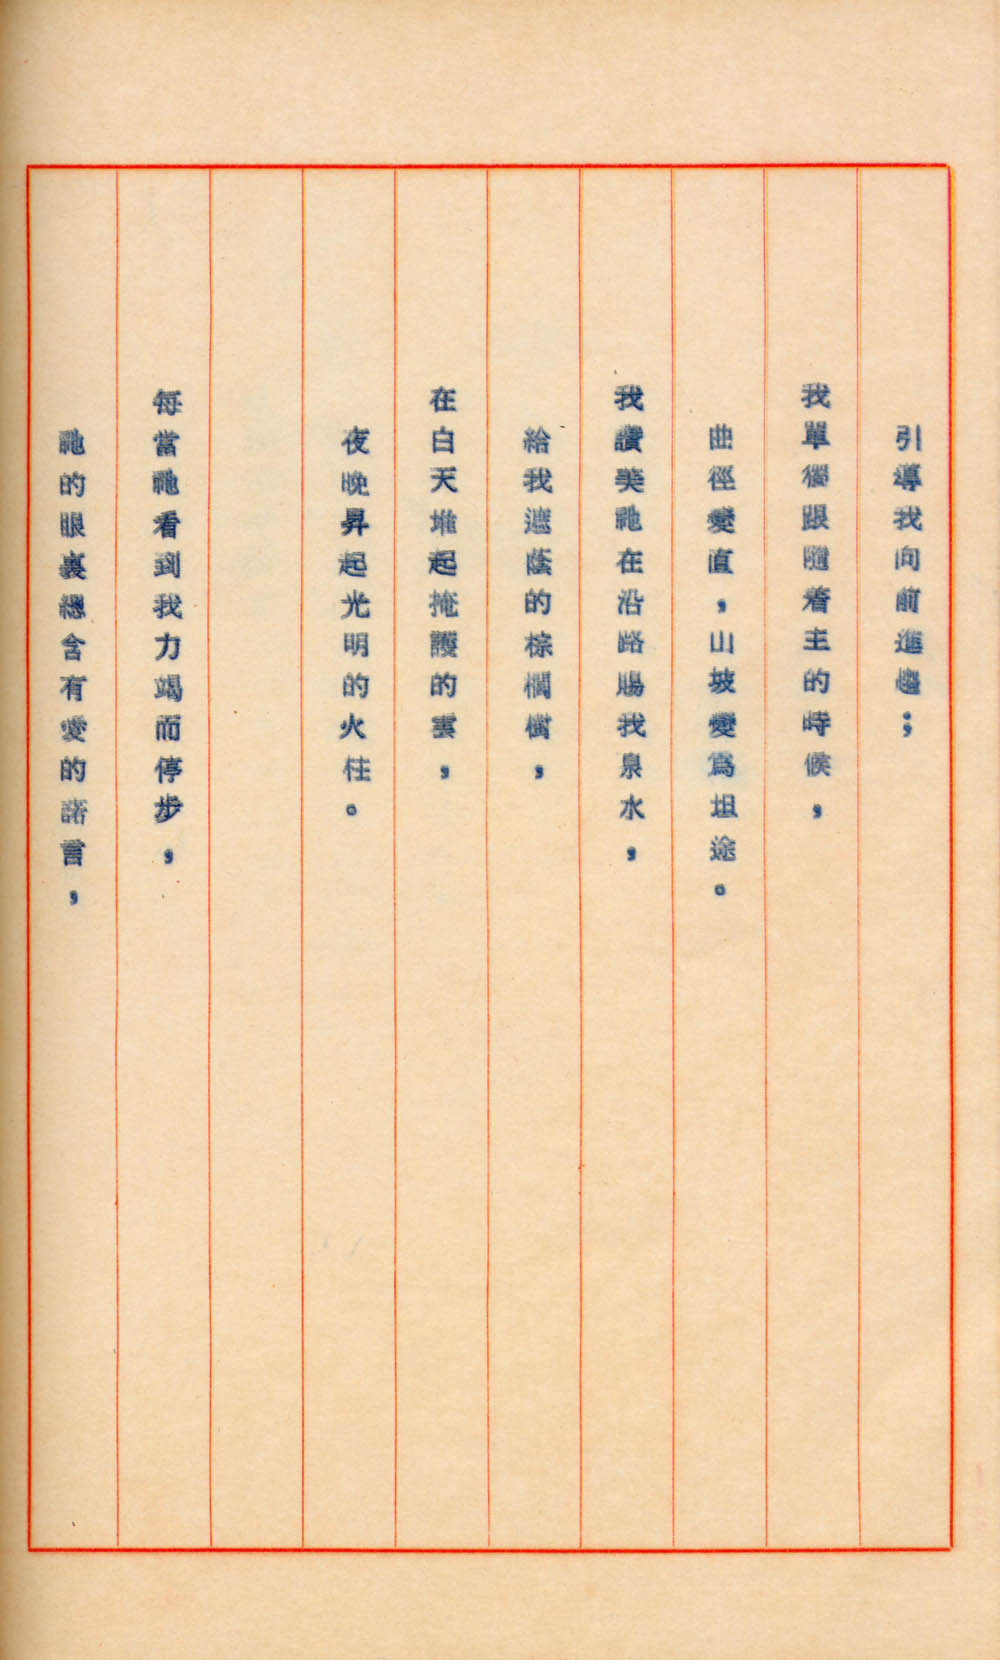 引導我向前進趨；
我單獨跟隨着主的時候，
曲徑變直，山坡變爲坦途。
我讚美祂在沿路賜我泉水，
給我遮蔭的棕櫚樹，
在白天堆起掩護的雲，
夜晚昇起光明的火柱。
每當祂看到我力竭而停步，
祂的眼裏總含有愛的諾言，